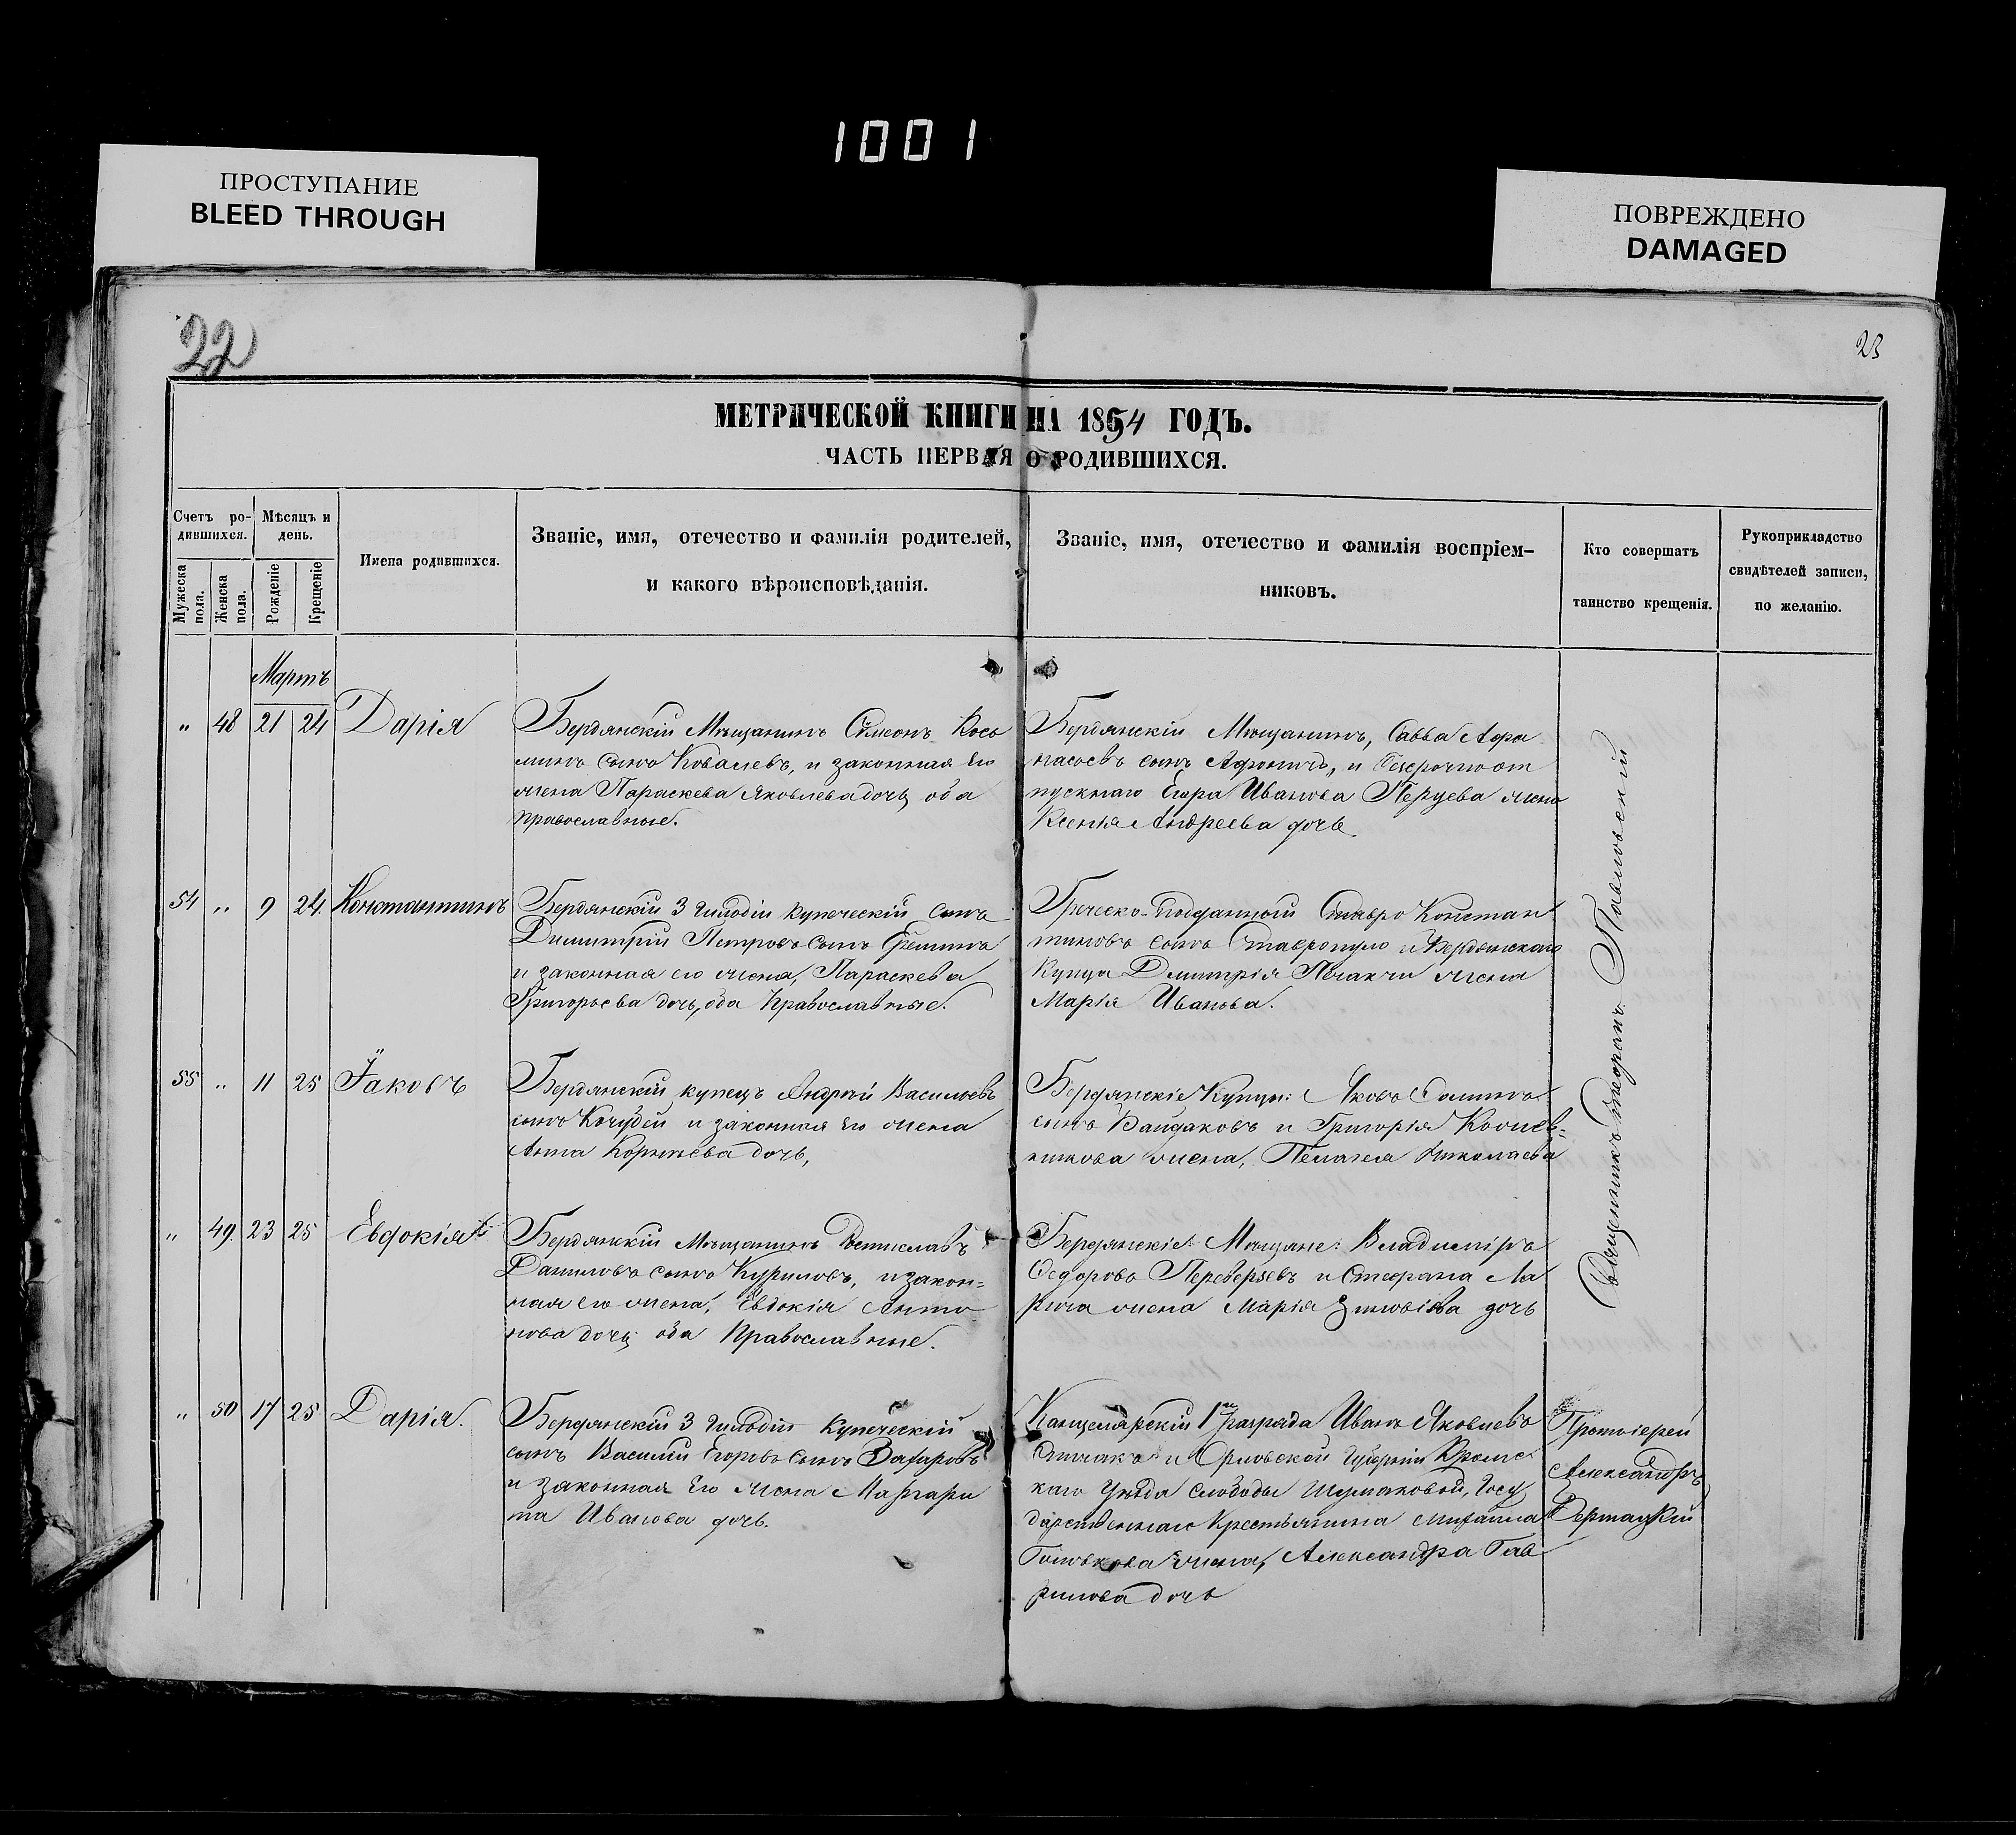 1001
ПРОСТУПАНИЕ
BLEED THROUGH
ПОВРЕЖДЕНО
DAMAGED
22
23
МЕТРИЧЕСКОЙ КНИГИ НА 1854 ГОДЪ.
ЧАСТЬ ПЕРВАЯ О РОДИВШИХСЯ.
Счетъ ро-
дившихся.
Мужеска
пола.
Женска
пола.
Мѣсяцъ и
день.
Рожденіе
Крещеніе
Имена родившихся.
Званіе, имя, отечество и фамилія родителей,
и какого вѣроисповѣданія.
Званіе, имя, отечество и фамилія воспріем-
никовъ.
Кто совершатъ
таинство крещенія.
Рукоприкладство
свидѣтелей записи,
по желанію.
Мартъ
" 48 21 24 Дарія
Бердянскій Мѣщанинъ Сѵмеонъ Косъ
минъ сынъ Ковалевъ, и законная его
жена Параскева Яковлева дочь, оба
православные.
Бердянскій Мѣщанинъ, Савва Афа
насьевъ сынъ и Безсрочноот
пускнаго Егора Иванова жена
Ксенія Андреева дочь
54 " 9 24. Константинъ
Бердянскій 3 гильдіи купеческій сынъ
Димитрій Петровъ сынъ
и законная его жена, Параскева
Григорьева дочь, оба Православные.
Греческо-подданный Ставро Констан
тиновъ сынъ Ставропуло и Бердянскаго
Купца Димитрія жена
Марія Иванова.
55 " 11 25 Іаковъ
Бердянскій купецъ Андрей Васильевъ
сынъ Кочубей и законная его жена
Анна Корнѣева дочь,
Бердянскіе Купцы: Яковъ
сынъ Байдаковъ и Григорія
жена, Пелагея Николаева
" 49. 23 25 Евдокія
Бердянскій Мѣщанинъ
Даниловъ сынъ Куриловъ, и закон=
ная его жена, Евдокія Анто
нова дочь оба Православные.
Бердянскіе Мѣщане: Владиміръ
Ѳедоровъ Переверзевъ и Стефана Ла
жена Марія Зиновіева дочь
" 50 17 25 Дарія.
Бердянскій 3 гильдіи купеческій
сынъ Василій Егоровъ сынъ Захаровъ
и законная его жена Маргари
та Иванова дочь.
Канцелярскій 1го разряда Иванъ Яковлевъ
и Орловской Губерніи Кромс
каго Уѣзда слободы Шумаковой, Госу
дарственнаго крестьянина Михаила
Головкова жена, Александра Гав
рилова дочь
Священникъ Стефанъ Павловскій
Протоіерей
Александръ